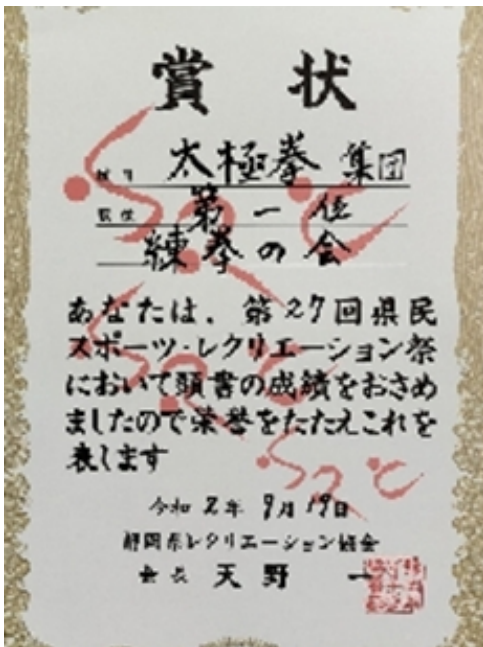 賞 状
種目 太極拳 集団
順位 第一位
練拳の会
あなたは、第27回県民
スポーツ・レクリエーション祭
において頭書の成績をおさめ
ましたので栄誉をたたえこれを
表します
令和 2年 9月 19日
静岡県レクリエーション協会
会長 天野 一